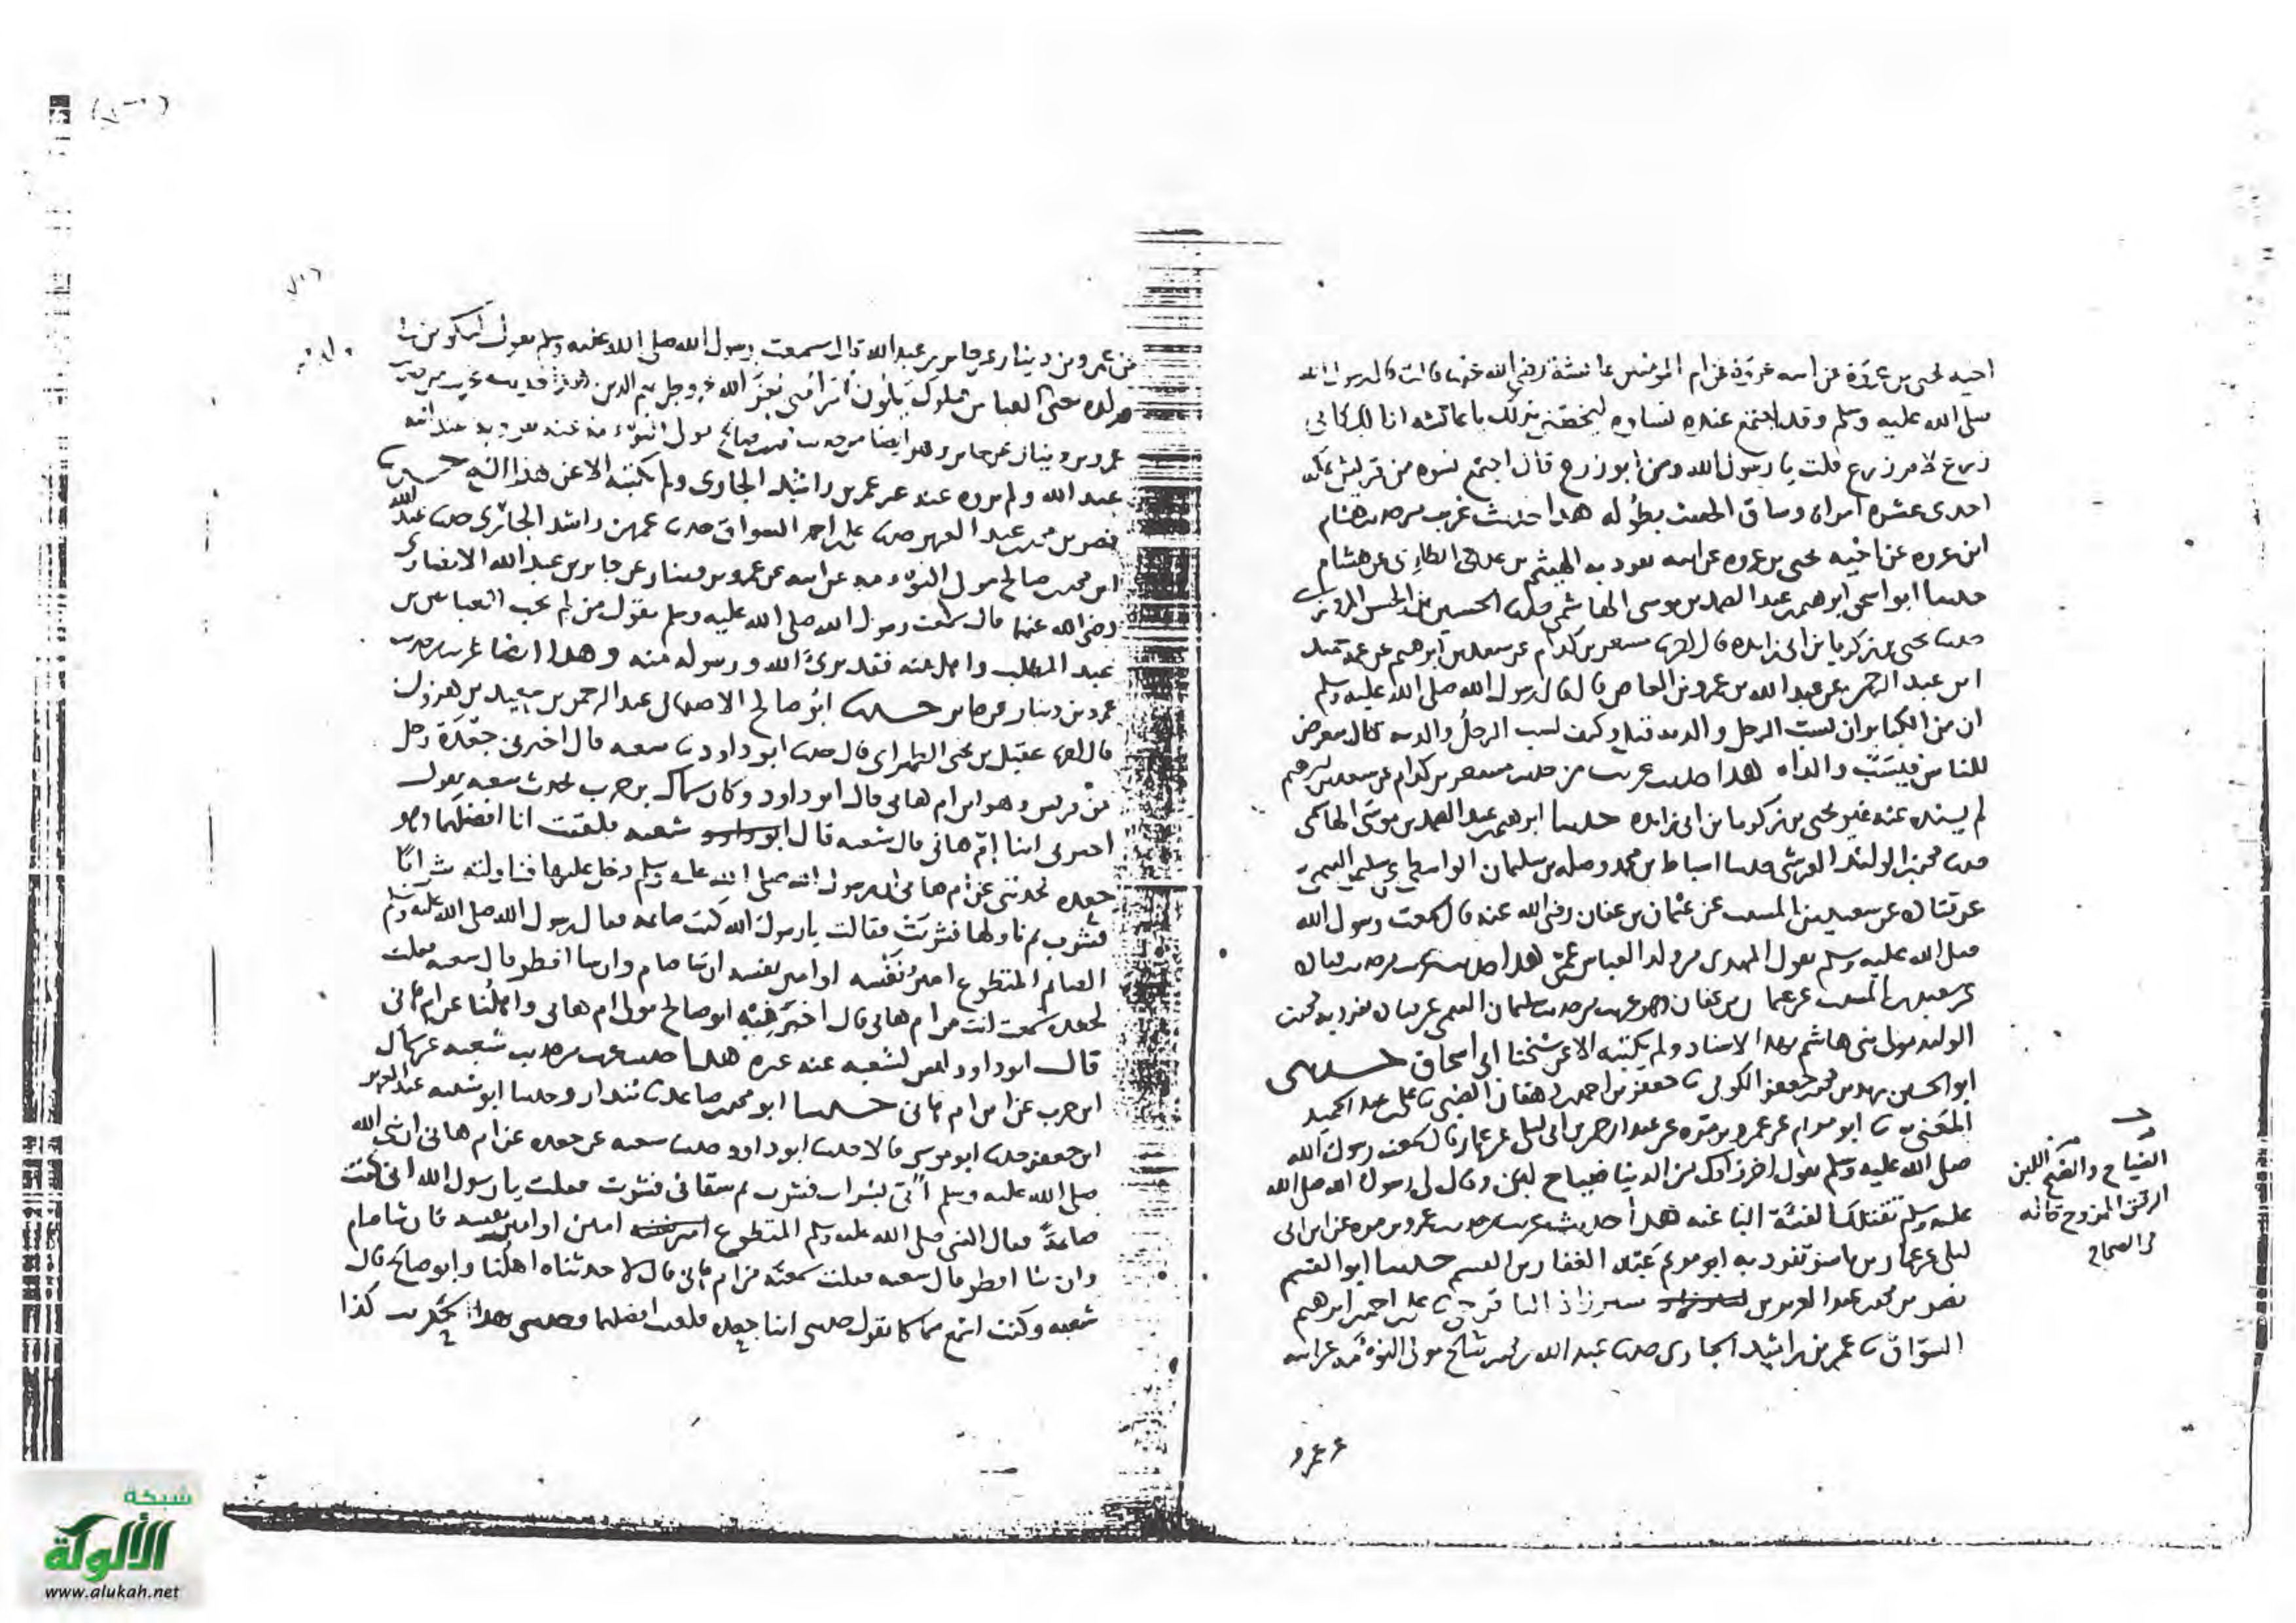 اخيه يحيى بن عروة عن ابيه عروة عن ام المومنين عائشة رضي الله عنها قالت قال رسول الله
صلى الله عليه وسلم وقد اجتمع عنده نساوه ليخصني بذلك يا عائشه انا لك كابي
زرع لام زرع قلت يا رسول الله ومن ابو زرع قال اجتمع نسوه من قريش بمكه
احدى عشره امراه وساق الحديث بطوله هذا حديث غريب من حديث هشام
ابن عروه عن اخيه يحيى بن عروه عن ابيه تفرد به الهيثم بن عدي الطائي عن هشام
حدثنا ابو اسحق ابرهيم بن عبد الصمد بن موسى الهاشمي حدثنا الحسين بن الحسن المروزي
حدثنا يحيى بن زكريا بن ابي زايده قال اخبرنا مسعر بن كدام عن سعد بن ابرهيم عن حميد
ابن عبد الرحمن عن عبد الله بن عمرو بن العاص قال قال رسول الله صلى الله عليه وسلم
ان من الكبائر ان يسب الرجل والديه قيل وكيف يسب الرجل والديه قال يتعرض
للناس فيسب والداه هذا حديث غريب من حديث مسعر بن كدام عن سعد بن ابرهيم
لم يسنده عنه غير يحيى بن زكريا بن ابي زايده حدثنا ابرهيم بن عبد الصمد بن موسى الهاشمي
حدثنا محمد بن الوليد القرشي حدثنا اسباط بن محمد وصله بن سليمان الواسطي عن سليمان التيمي
عن قتاده عن سعيد بن المسيب عن عثمان بن عفان رضي الله عنه قال سمعت رسول الله
صلى الله عليه وسلم يقول المهدي من ولد العباس عمي هذا حديث غريب من حديث قتاده
عن سعيد بن المسيب عن عثمان بن عفان وهو غريب من حديث سليمان التيمي عن قتاده تفرد به محمد بن
الوليد مولى بني هاشم بهذا الاسناد ولم نكتبه الا عن شيخنا ابي اسحاق حدثني
ابو الحسين محمد بن جعفر الكوفي نا جعفر بن احمد دهقان الضبي نا علي بن عبد الحميد
المعني نا ابو مريم عن عمرو بن مره عن عبد الرحمن بن ابي ليلى عن عمار قال سمعت رسول الله
صلى الله عليه وسلم يقول اخر زادك من الدنيا ضياح لبن وقال لي رسول الله صلى الله
عليه وسلم تقتلك الفئة الباغيه هذا حديث غريب من حديث عمرو بن مره عن ابن ابي
ليلى عن عمار بن ياسر تفرد به ابو مريم عبد الغفار بن القسم حدثنا ابو القسم
نصر بن محمد بن عبد العزيز بن شيرزاذ الباقرحي نا علي بن احمد بن ابرهيم
السواق نا عمر بن راشد الجاري حدثنا عبد الله بن محمد بن صالح مولى التوءمه عن ابيه
عن عمرو
الضياح والضيح اللبن
الرقيق الممزوج قاله
في الصحاح
عن عمرو بن دينار عن جابر بن عبد الله قال سمعت رسول الله صلى الله عليه وسلم يقول ليكونن
من ولده يعني العباس ملوك يلون امر امتي يعز الله عز وجل بهم الدين هذا حديث غريب من حديث
عمرو بن دينار عن جابر وهو ايضا من حديث محمد بن صالح مولى التوءمه عنه تفرد به عنه ابنه
عبد الله ولم يروه عنه غير عمر بن راشد الجاري ولم نكتبه الا عن هذا الشيخ حدثنا
نصر بن محمد بن عبد العزيز حدثنا علي بن احمد السواق حدثنا عمر بن راشد الجاري حدثنا عبد الله
ابن محمد بن صالح مولى التوءمه عن ابيه عن عمرو بن دينار عن جابر بن عبد الله الانصاري
رضي الله عنهما قال سمعت رسول الله صلى الله عليه وسلم يقول من لم يحب العباس بن
عبد المطلب واهل بيته فقد برئ الله ورسوله منه وهذا ايضا غريب من حديث
عمرو بن دينار عن جابر حدثنا ابو صالح الاصبهاني عبد الرحمن بن سعيد بن هرون
قال اخبرنا عقيل بن يحيى الطهراني قال حدثنا ابو داود نا شعبه قال اخبرني جعدة رجل
من قريش وهو ابن ام هاني قال ابو داود وكان سماك بن حرب يحدث شعبه يقول
اخبرني ابنا ام هاني قال شعبه قال شعبه فلقيت انا افضلهما وهو
جعده فحدثني عن ام هاني ان رسول الله صلى الله عليه وسلم دخل عليها فناولته شرابا
فشرب ثم ناولها فشربت فقالت يا رسول الله كنت صائمه فقال رسول الله صلى الله عليه وسلم
الصائم المتطوع امين نفسه او امير نفسه ان شا صام وان شا افطر قال شعبه فقلت
لجعده سمعت انت من ام هاني قال اخبرنيه ابو صالح مولى ام هاني واهلنا عن ام هاني
قال ابو داود ليس لشعبه عنه غيره هذا حديث غريب من حديث شعبه عن سماك
ابن حرب عن ابن ام هاني حدثنا ابو محمد بن صاعد نا بندار وحدثنا ابو شعبه عبد العزيز
ابن جعفر حدثنا ابو موسى قالا حدثنا ابو داود حدثنا شعبه عن جعده عن ام هاني ان نبي الله
صلى الله عليه وسلم اتي بشراب فشرب ثم سقاني فشربت فقلت يا رسول الله اني كنت
صائمة فقال النبي صلى الله عليه وسلم المتطوع امين او امير نفسه فان شا صام
وان شا افطر قال شعبه فقلت سمعته من ام هاني قال لا حدثناه اهلنا وابو صالح قال
شعبه وكنت اسمع سماكا يقول حدثني ابنا جعده فلقيت افضلهما فحدثني بهذا الحديث كذا
شبكة
الألوكة
www.alukah.net